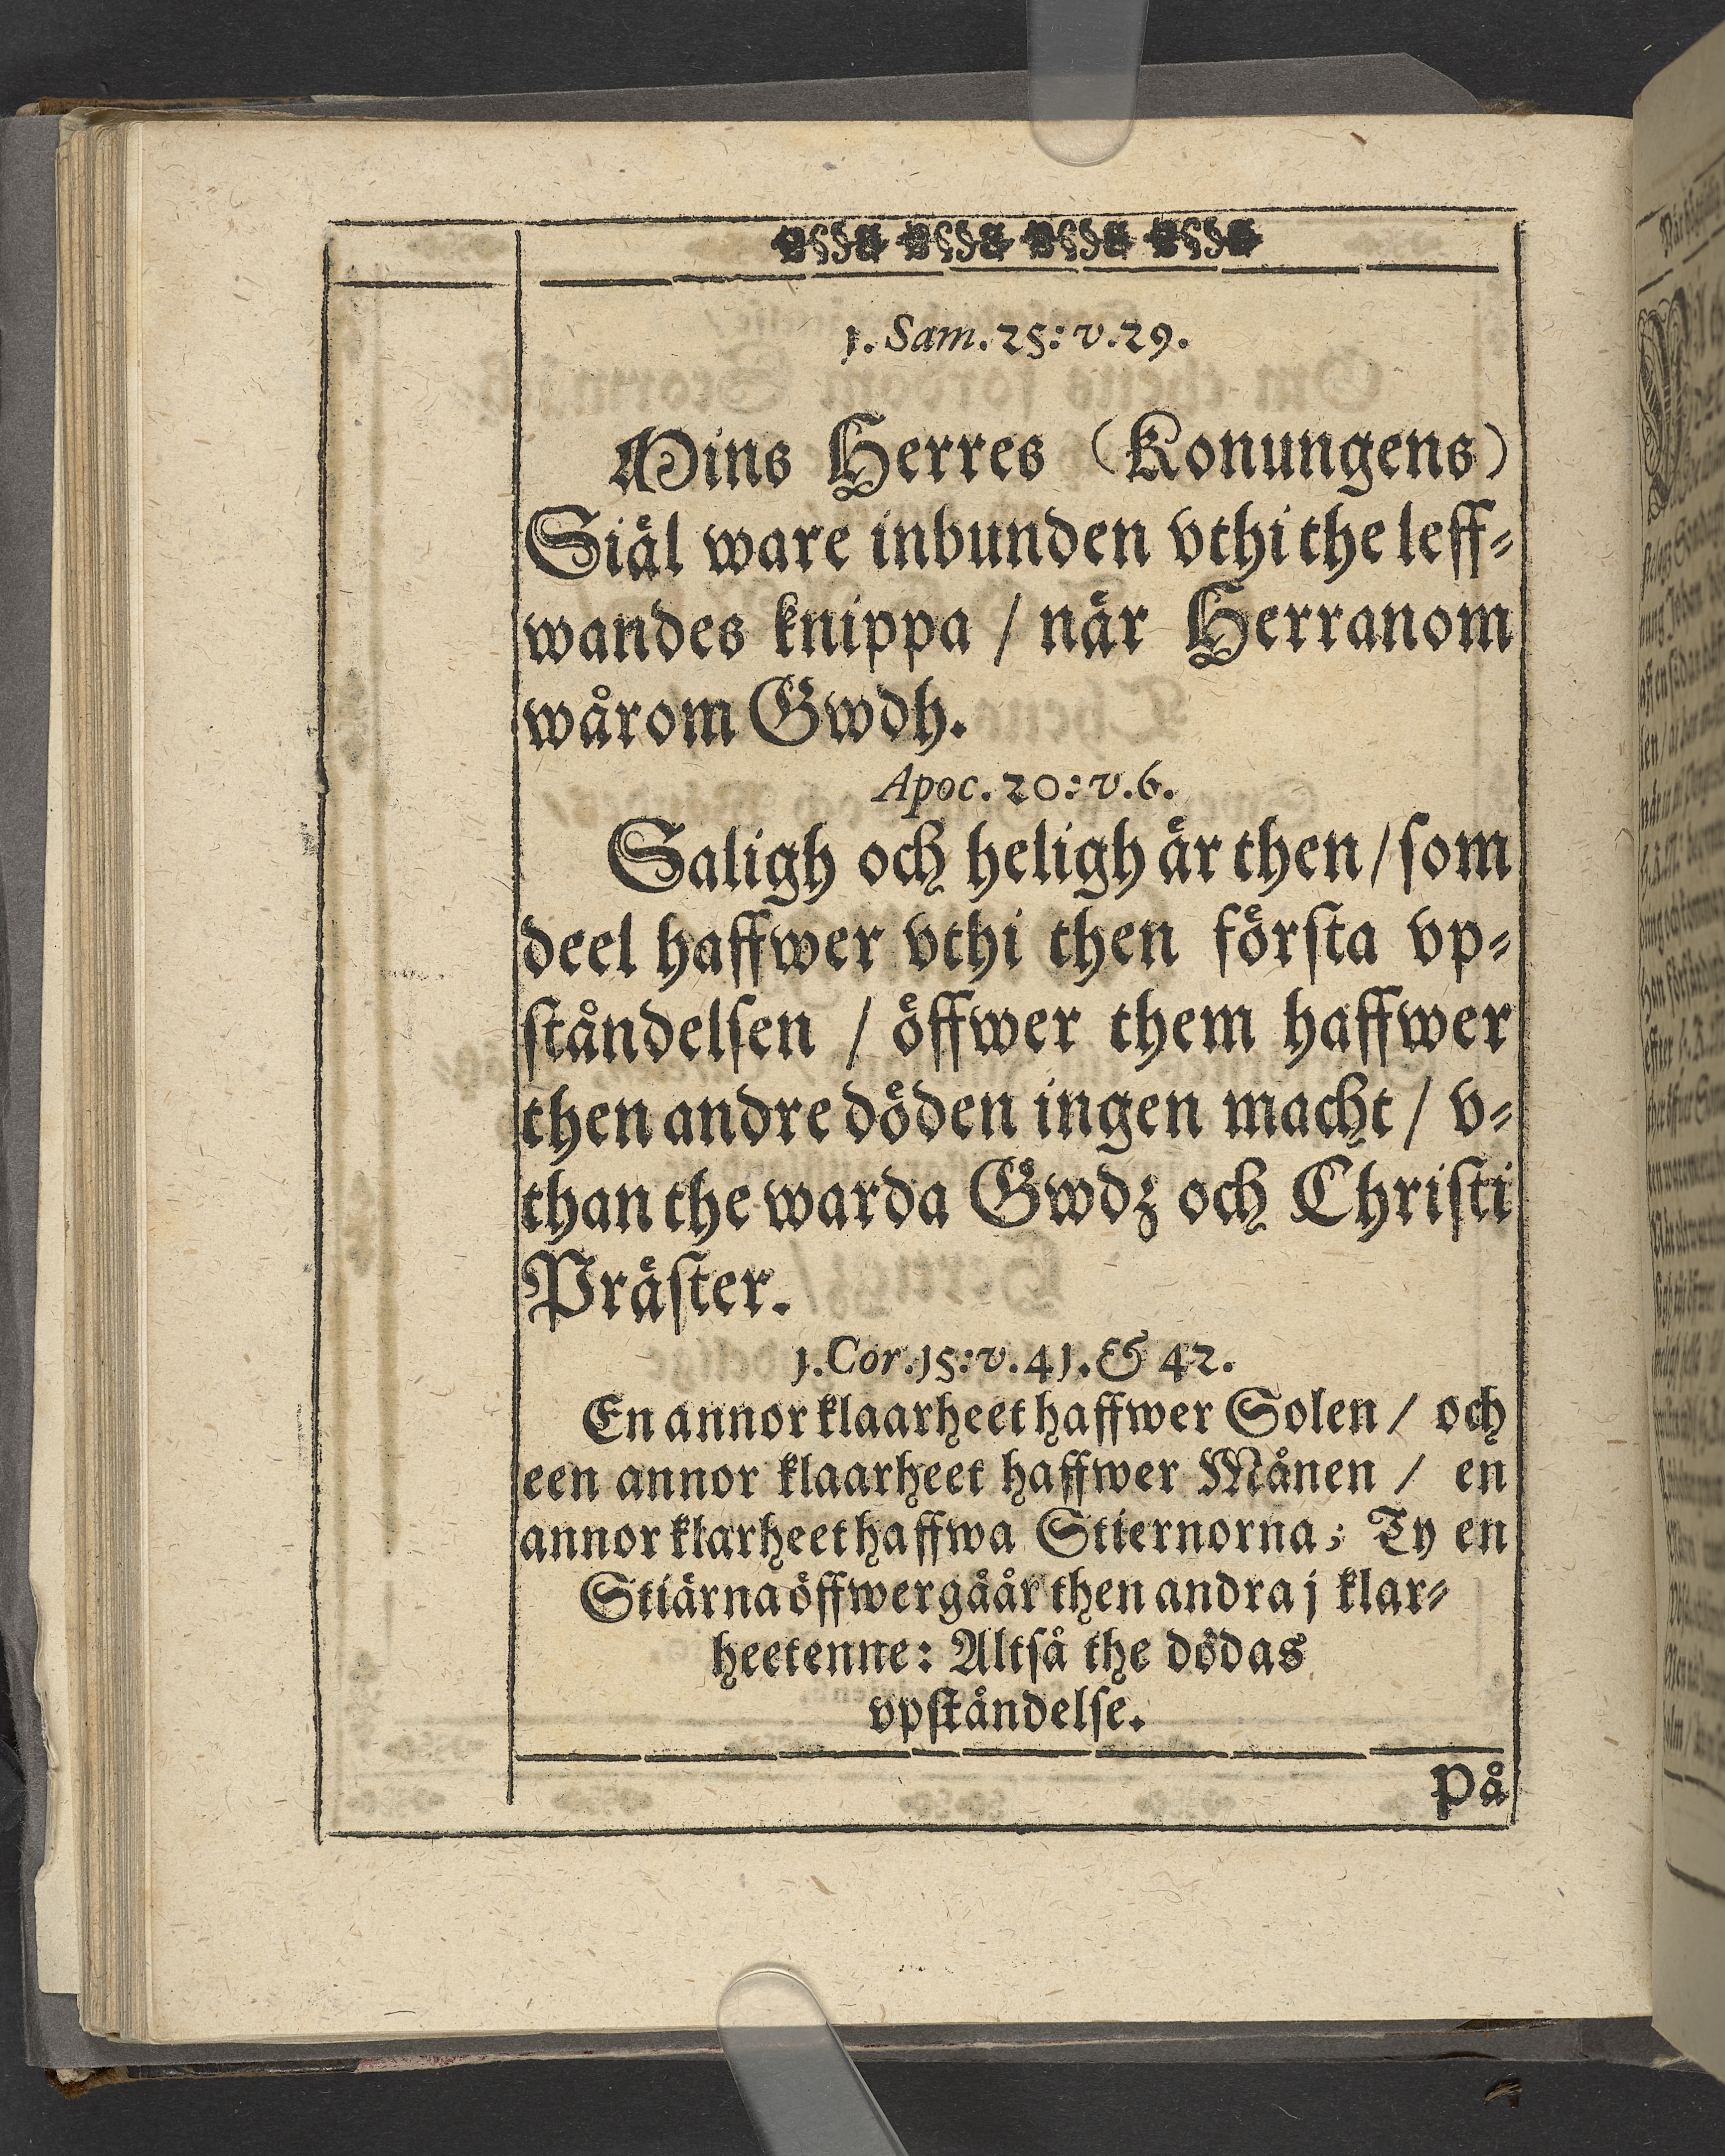 1. Sam. 25: v. 29.
Mins Herres (Konungens)
Siäl ware inbunden vthi the leff-
wandes knippa / när Herranom
wårom Gwdh.
Apoc. 20: v. 6.
Saligh och heligh är then / som
deel haffwer vthi then förſta vp-
ſtåndelſen / öffwer them haffwer
then andre döden ingen macht / v-
than the warda Gwdz och Chriſti
Präſter.
1. Cor. 15: v. 41. & 42.
En annor klaarheet haffwer Solen / och
een annor klaarheet haffwer Månen / en
annor klarheet haffwa Stiernorna; Ty en
Stiärna öffwergåår then andra j klar-
heetenne: Altſå the dödas
vpſtåndelſe.
På